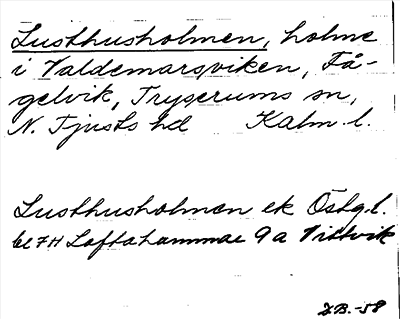 Lusthusholmen, holme
i Valdemarsviken, Få-
gelvik, Tryserums sn,
N. Tjusts hd Kalm. l.
Lusthusholmen ek Östg. l.
bl 7H Loftahammar 9a Vittvik
ZB.-58